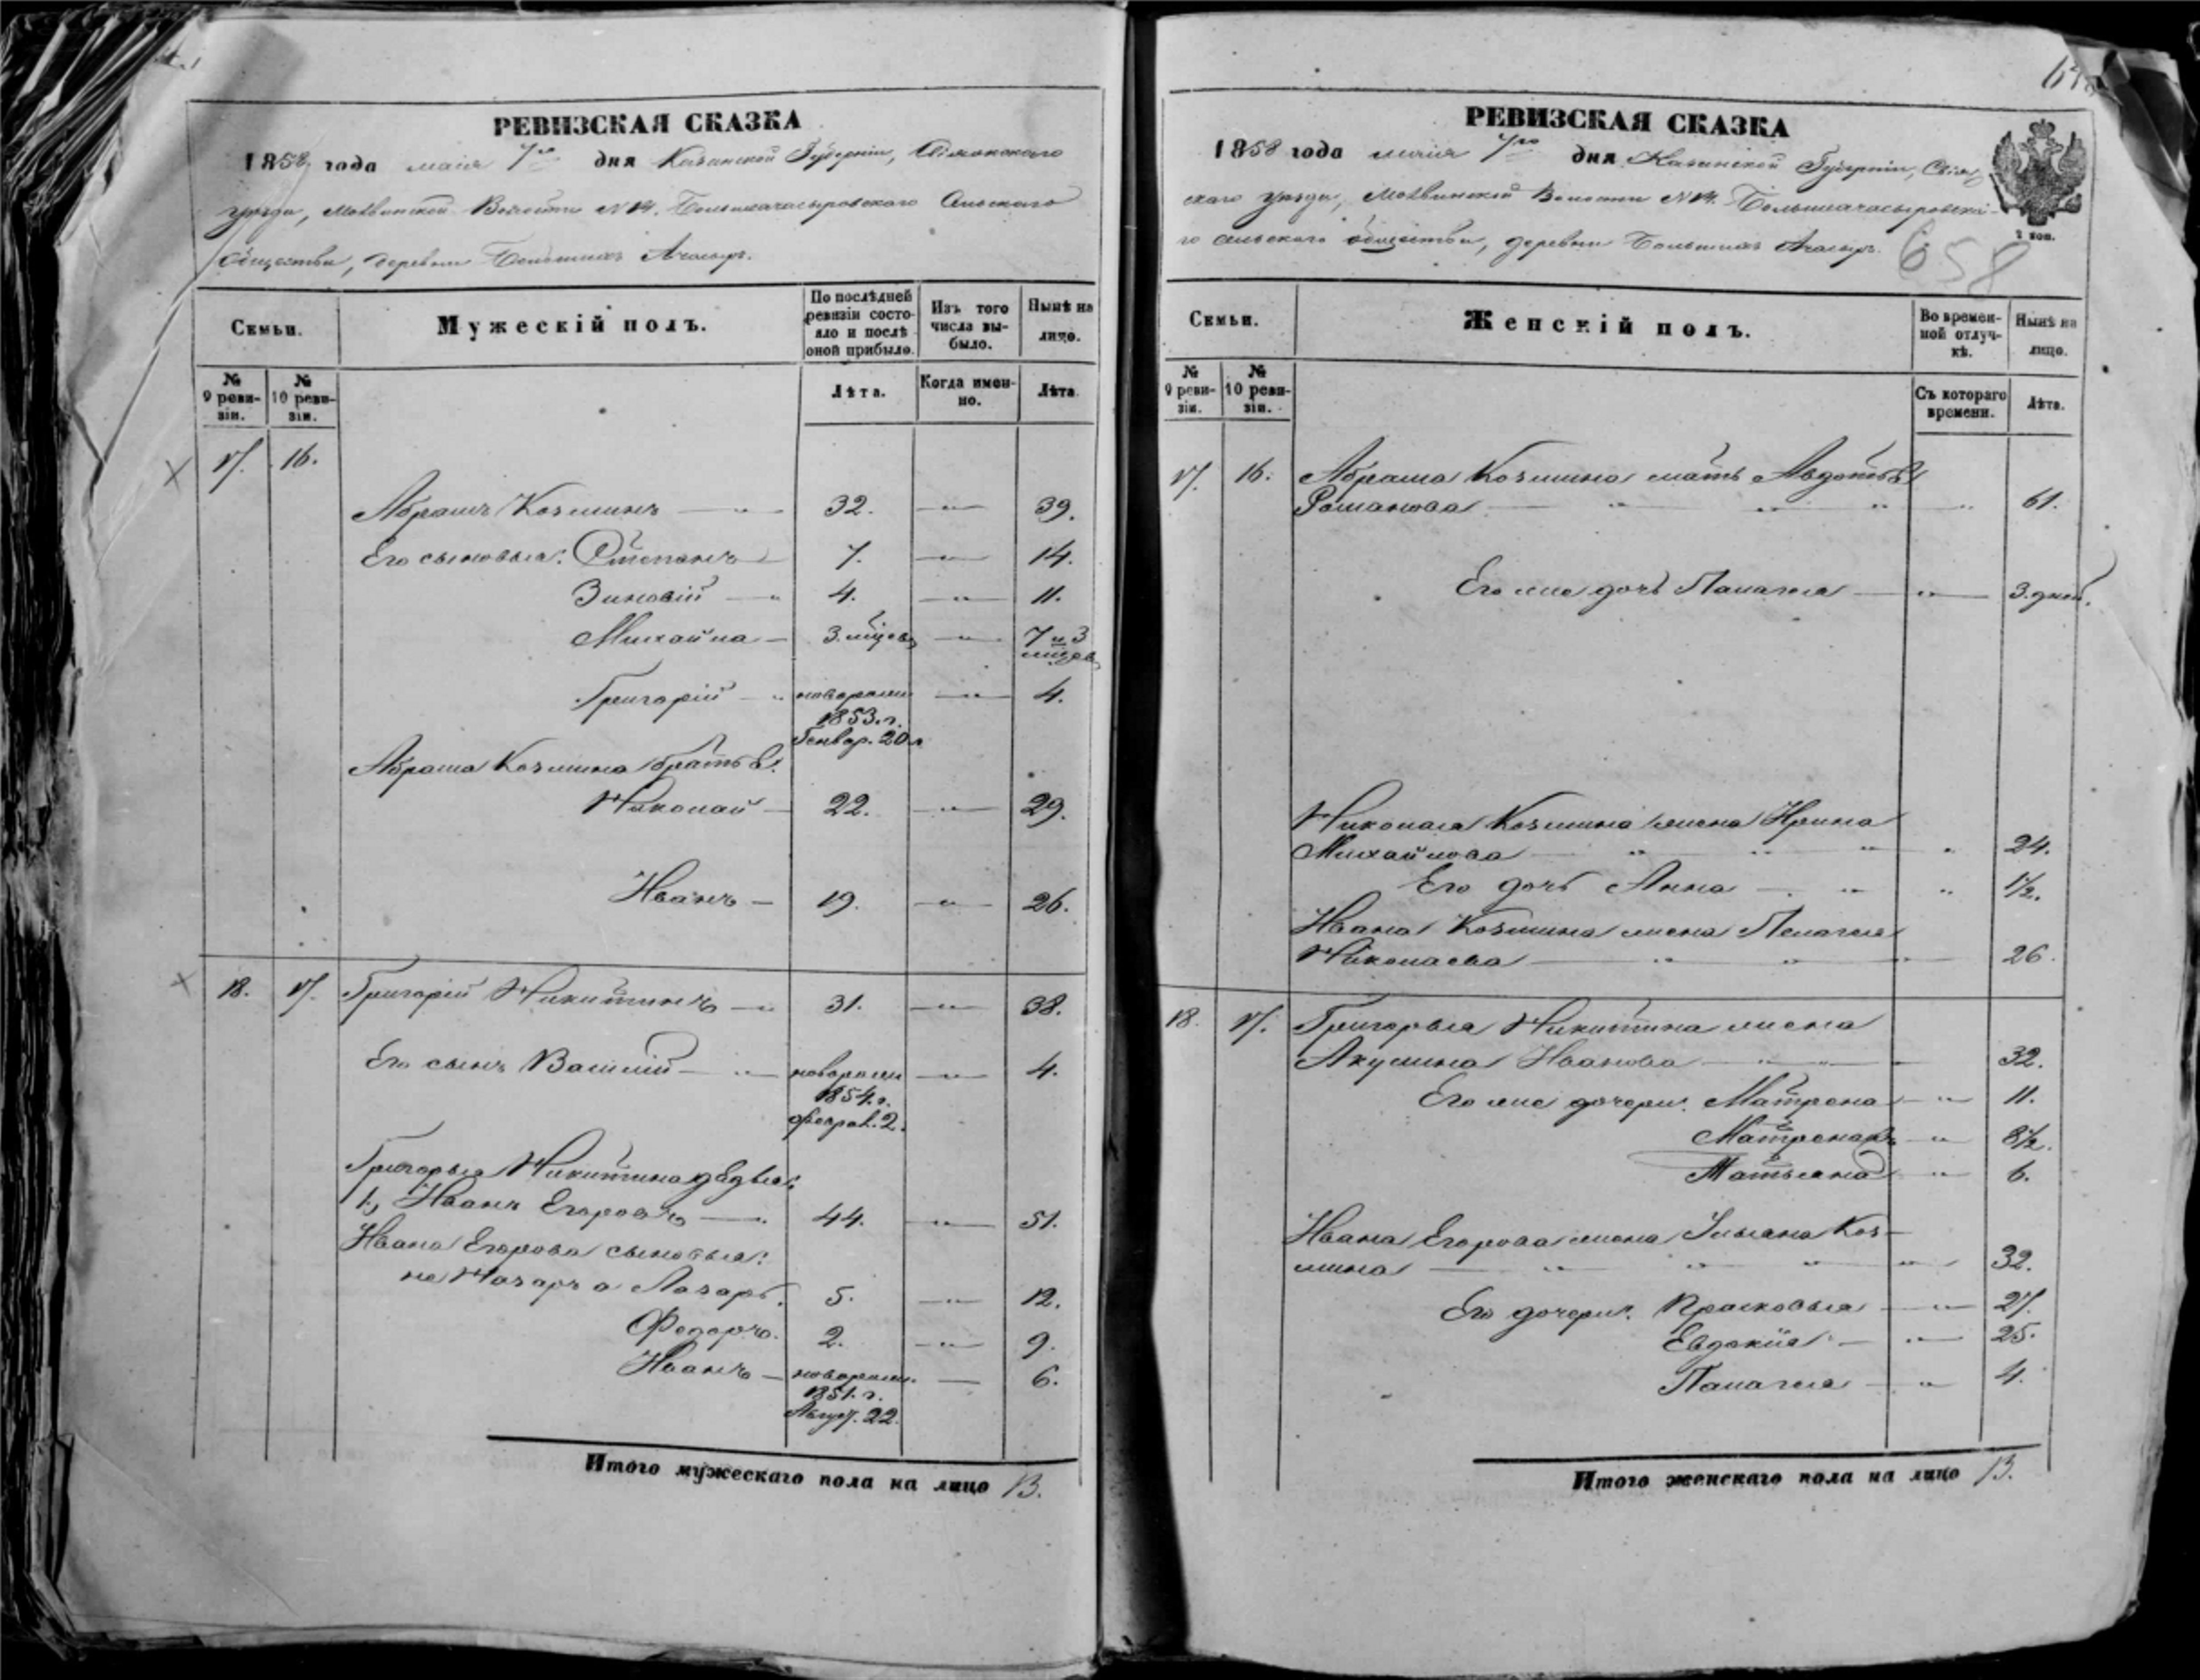 РЕВИЗСКАЯ СКАЗКА
1858 года маія 7го дня Казанской Губерніи, Свіяжскаго
уѣзда, Волости № 14. Большеачасыровскаго Сельскаго
Общества, деревни Большихъ Ачасыръ.
Семьи.
Мужескій полъ.
По послѣдней ревизіи состояло и послѣ оной прибыло.
Изъ того числа вы-
было.
Нынѣ на
лицо.
№
9 реви-
зіи.
№
10 реви-
зіи.
Лѣта.
Когда имен-
но.
Лѣта.
17. 16.
Абрамъ Козминъ — 32. — 39.
Его сыновья: Степанъ — 7. — 14.
Зиновій — 4. — 11.
Михайла — 3. мѣсев — 7 и 3
мѣсев
Григорій — новорожд — 4.
1853. г.
Генвар. 20
Абрама Козмина братья:
Николай — 22. — 29.
Иванъ — 19. — 26.
18. 17. Григорій Никитинъ — 31. — 38.
Его сынъ Василій — новорожд — 4.
1854. г.
феврал. 2.
Григорья Никитина дядья:
1, Иванъ Егоровъ — 44. — 51.
Ивана Егорова сыновья:
не Назаръ а Лазарь. 5. — 12.
Федоръ. 2. — 9.
Иванъ — новорожд. — 6.
1851. г.
Август. 22.
Итого мужескаго пола на лицо 13.
РЕВИЗСКАЯ СКАЗКА
1858 года маія 7го дня Казанской Губерніи, Свіяж-
скаго уѣзда, Волости № 14. Большеачасыровска-
го сельскаго общества, деревни Большихъ Ачасыръ.
2 коп.
658
Семьи.
Женскій полъ.
Во времен-
ной отлуч-
кѣ.
Нынѣ на
лицо.
№
9 реви-
зіи.
№
10 реви-
зіи.
Съ котораго
времени.
Лѣта.
17. 16. Абрама Козмина мать Авдотья
Романова — 61.
Его же дочь Палагея — 3. дней.
Николая Козмина жена Ирина
Михайлова — 24.
Его дочь Анна — 1½.
Ивана Козмина жена Пелагея
Николаева — 26.
18. 17. Григорья Никитина жена
Акулина Иванова — 32.
Его же дочери: Матрена — 11.
Матрена — 8½.
Татьяна — 6.
Ивана Егорова жена Ульяна Коз-
мина — 32.
Его дочери: Прасковья — 27.
Евдокія — 25.
Палагея — 4.
Итого женскаго пола на лицо 13.